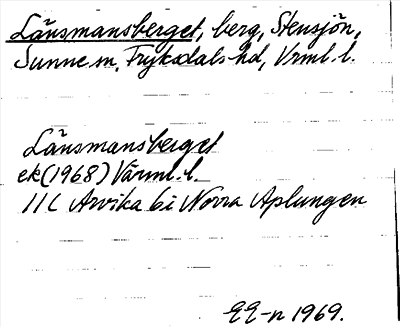 Länsmansberget, berg, Stensjön,
Sunne sn, Fryksdals hd, Vrml. l.
Länsmansberget
ek (1968) Värml. l.
11C Arvika 6i Norra Aplungen
EE-n 1969.